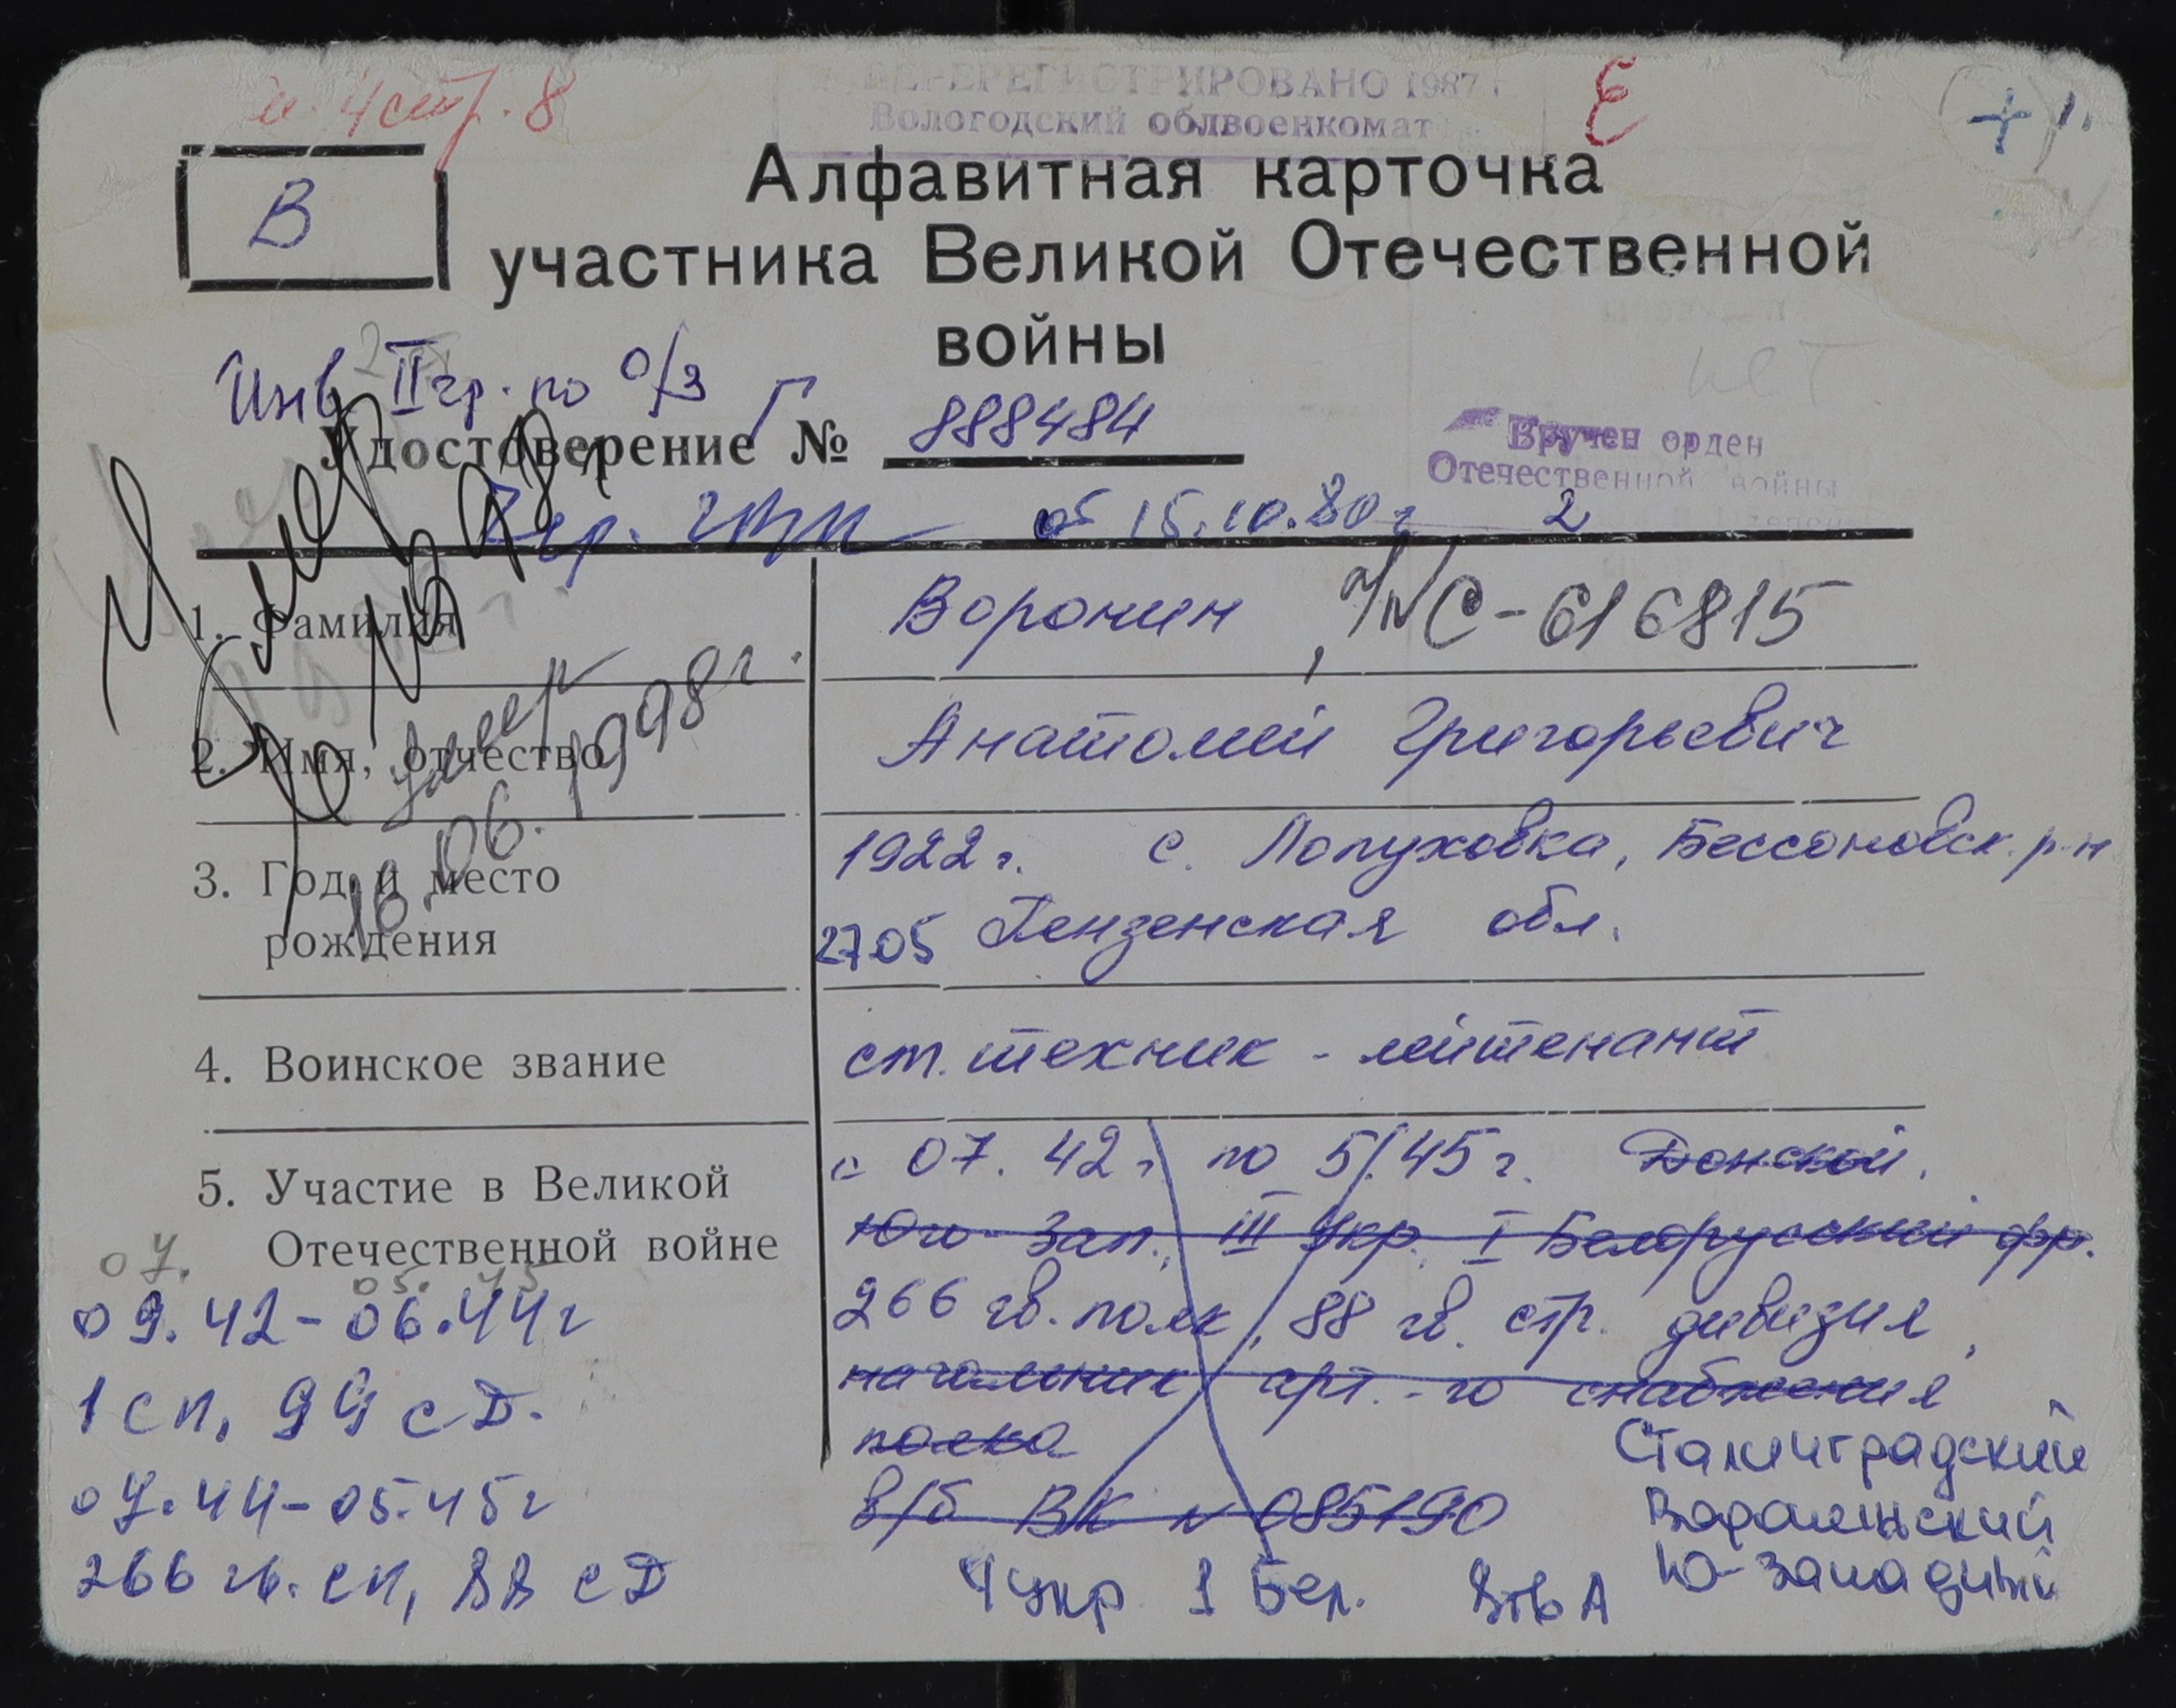 стр. 8
ПЕРЕРЕГИСТРИРОВАНО 1987 г
Вологодский облвоенкомат
Е
+
В
Алфавитная карточка
участника Великой Отечественной
войны
Инв. II гр. по о/з
Удостоверение № 888484
Вручен орден
Отечественной войны
2
2 гр. от 15.10.80 г
1. Фамилия
Воронин, С-616815
умер
2. Имя, отчество
Анатолий Григорьевич
умер 16.06.1998г.
3. Год и место
рождения
1922 г. с. Лопуховка, Бессоновск. р-н
2705 Пензенская обл.
4. Воинское звание
ст. техник - лейтенант
5. Участие в Великой
Отечественной войне
с 07. 42 г по 5/.45 г. Донской,
Юго-Зап., III Укр., I Белорусский фр.
266 гв. полк, 88 гв. стр. дивизия,
начальник арт.-го снабжения
полка
в/б ВК № 085190
07.
05. 45
09.42-06.44г
1 сп, 99 сД.
07.44-05.45г
266 гв. сп, 88 сД
Сталинградский
Воронежский
Ю-Западный
4 укр. 1 Бел. 8 гв А